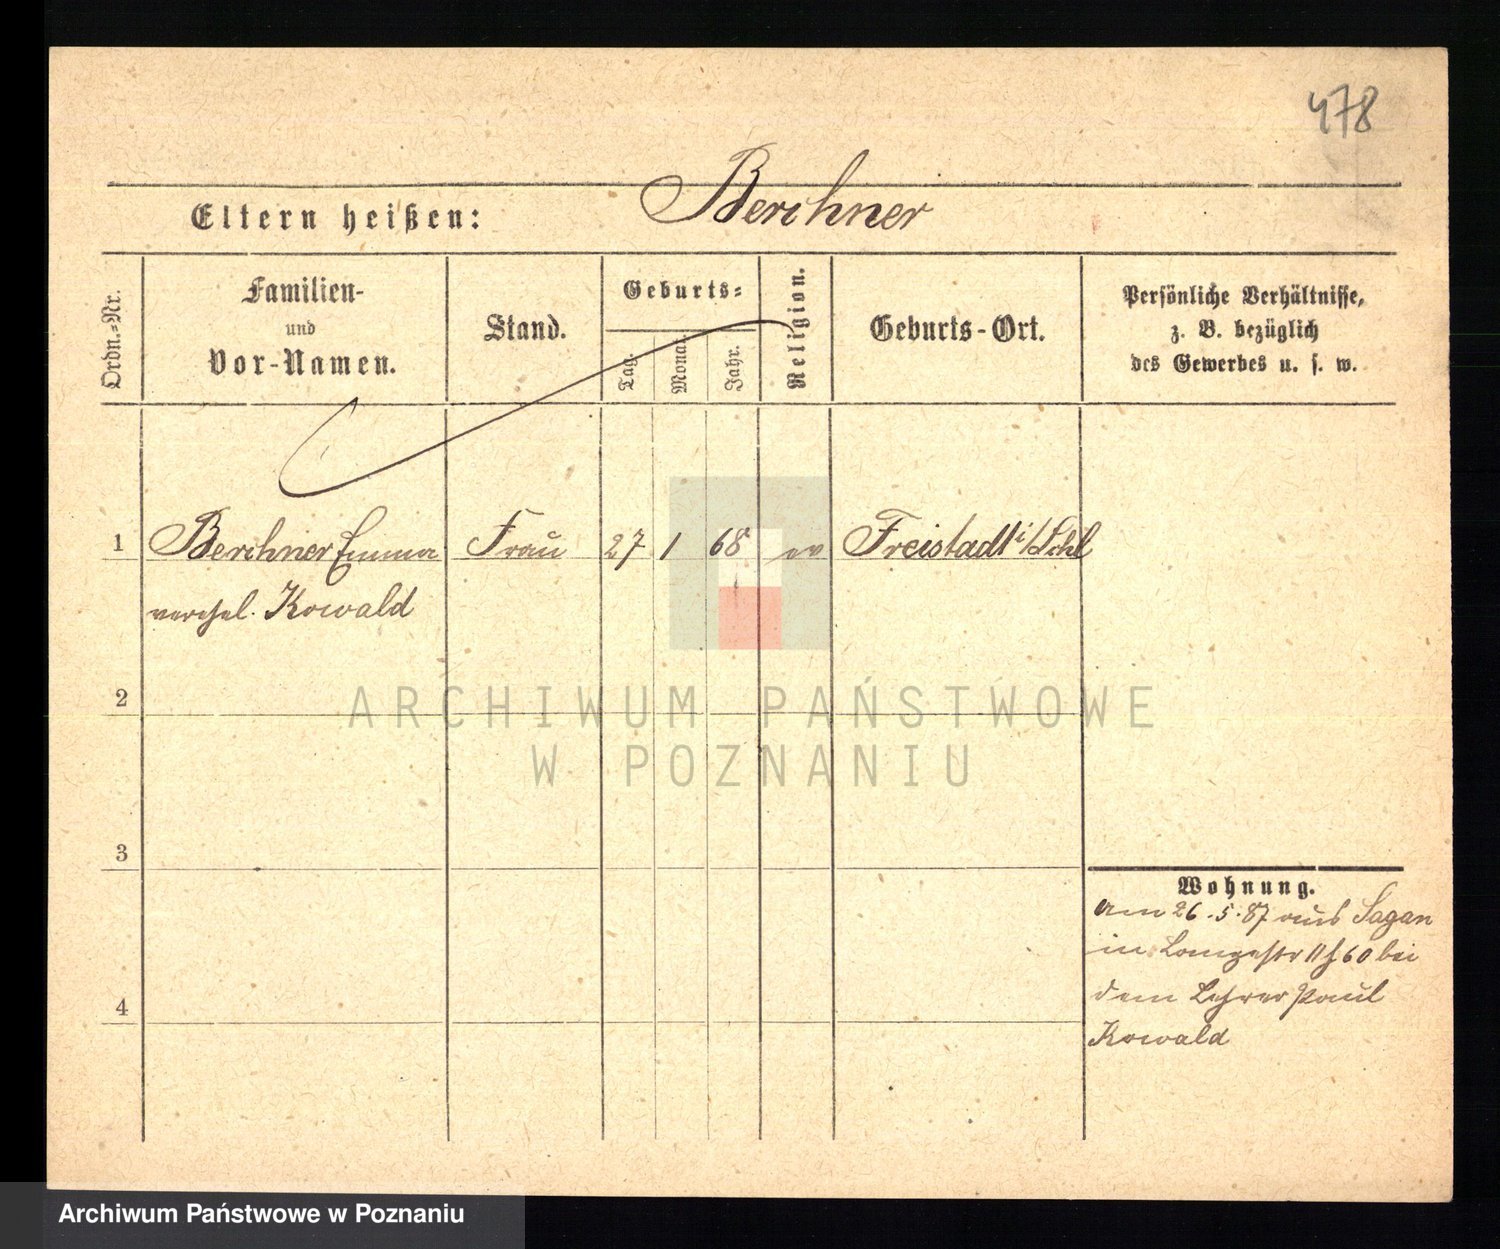 478
Eltern heißen: Berchner
Ordn.-Nr.
Familien-
und
Vor-Namen.
Stand.
Geburts-
Tag.
Monat
Jahr.
Religion.
Geburts-Ort.
Persönliche Verhältnisse,
z. B. bezüglich
des Gewerbes u. s. w.
1 Berchner Emma Frau 27 1 68 ev Freistadt i/Schl
verehel. Kowald
2
3
4
Wohnung.
am 26.5.87 aus Sagan
in Langestr 60 bei
dem Lehrer Paul
Kowald
ARCHIWUM PAŃSTWOWE
W POZNANIU
Archiwum Państwowe w Poznaniu